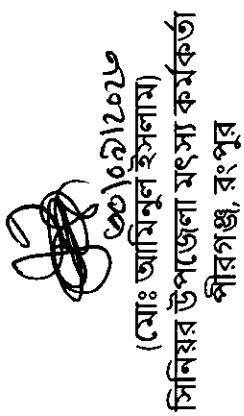 (মোঃ আমিনুল ইসলাম)
সিনিয়র উপজেলা মৎস্য কর্মকর্তা
পীরগঞ্জ, রংপুর